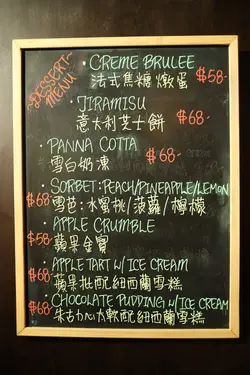 DESSERT- MENU
• CREME BRULEE $58-
法式焦糖燉蛋
• JIRAMISU
意大利芝士餅 $68-
• PANNA COTTA $68-
雪白奶凍
• SORBET: PEACH/PINEAPPLE/LEMON
$68- 雪芭: 水蜜桃/菠蘿/檸檬
• APPLE CRUMBLE
$58- 蘋果金寶
• APPLE TART W/ ICE CREAM
$68- 蘋果批配紐西蘭雪糕
• CHOCOLATE PUDDING W/ ICE CREAM
$68- 朱古力心太軟配紐西蘭雪糕